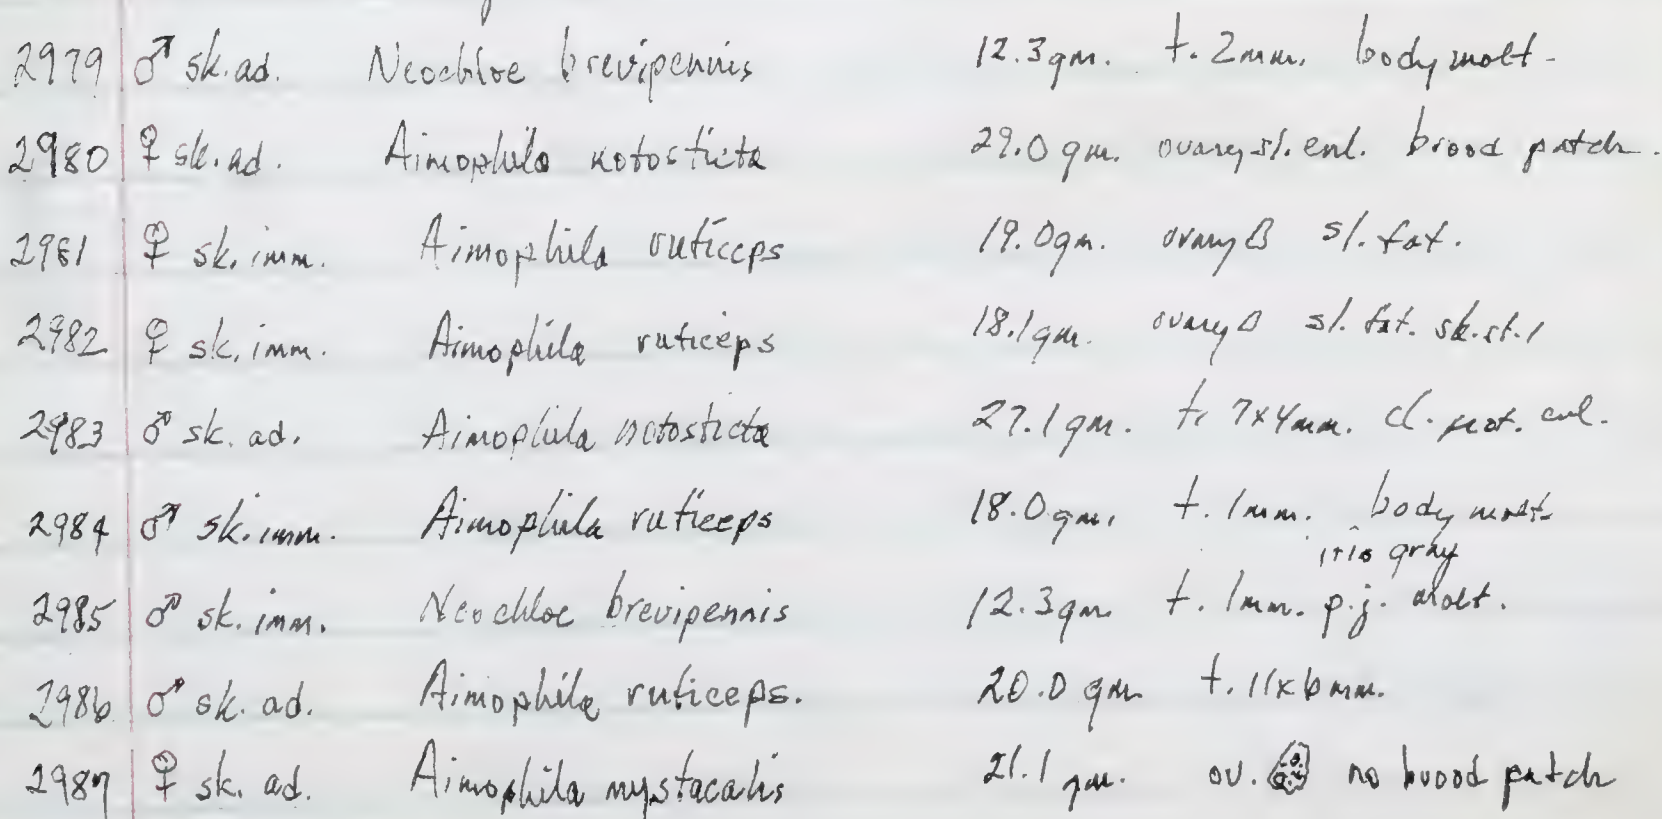 2979 ♂ sk. ad. Neochloe brevipennis 12.3 gm. t. 2mm. body molt-
2980 ♀ sk. ad. Aimophila notosticta 29.0 gm. ovary sl. enl. brood patch.
2981 ♀ sk. imm. Aimophila ruficeps 19.0 gm. ovary sl. fat.
2982 ♀ sk. imm. Aimophila ruficeps 18.1 gm. ovary sl. fat. sk. st. 1
2983 ♂ sk. ad. Aimophila notosticta 27.1 gm. t. 7x4mm. cl. prot. enl.
2984 ♂ sk. imm. Aimophila ruficeps 18.0 gm. t. 1mm. body molt.
iris gray
2985 ♂ sk. imm. Neochloe brevipennis 12.3 gm t. 1mm. p.j. molt.
2986 ♂ sk. ad. Aimophila ruficeps. 20.0 gm t. 11x6mm.
2987 ♀ sk. ad. Aimophila mystacalis 21.1 gm. ov. no brood patch